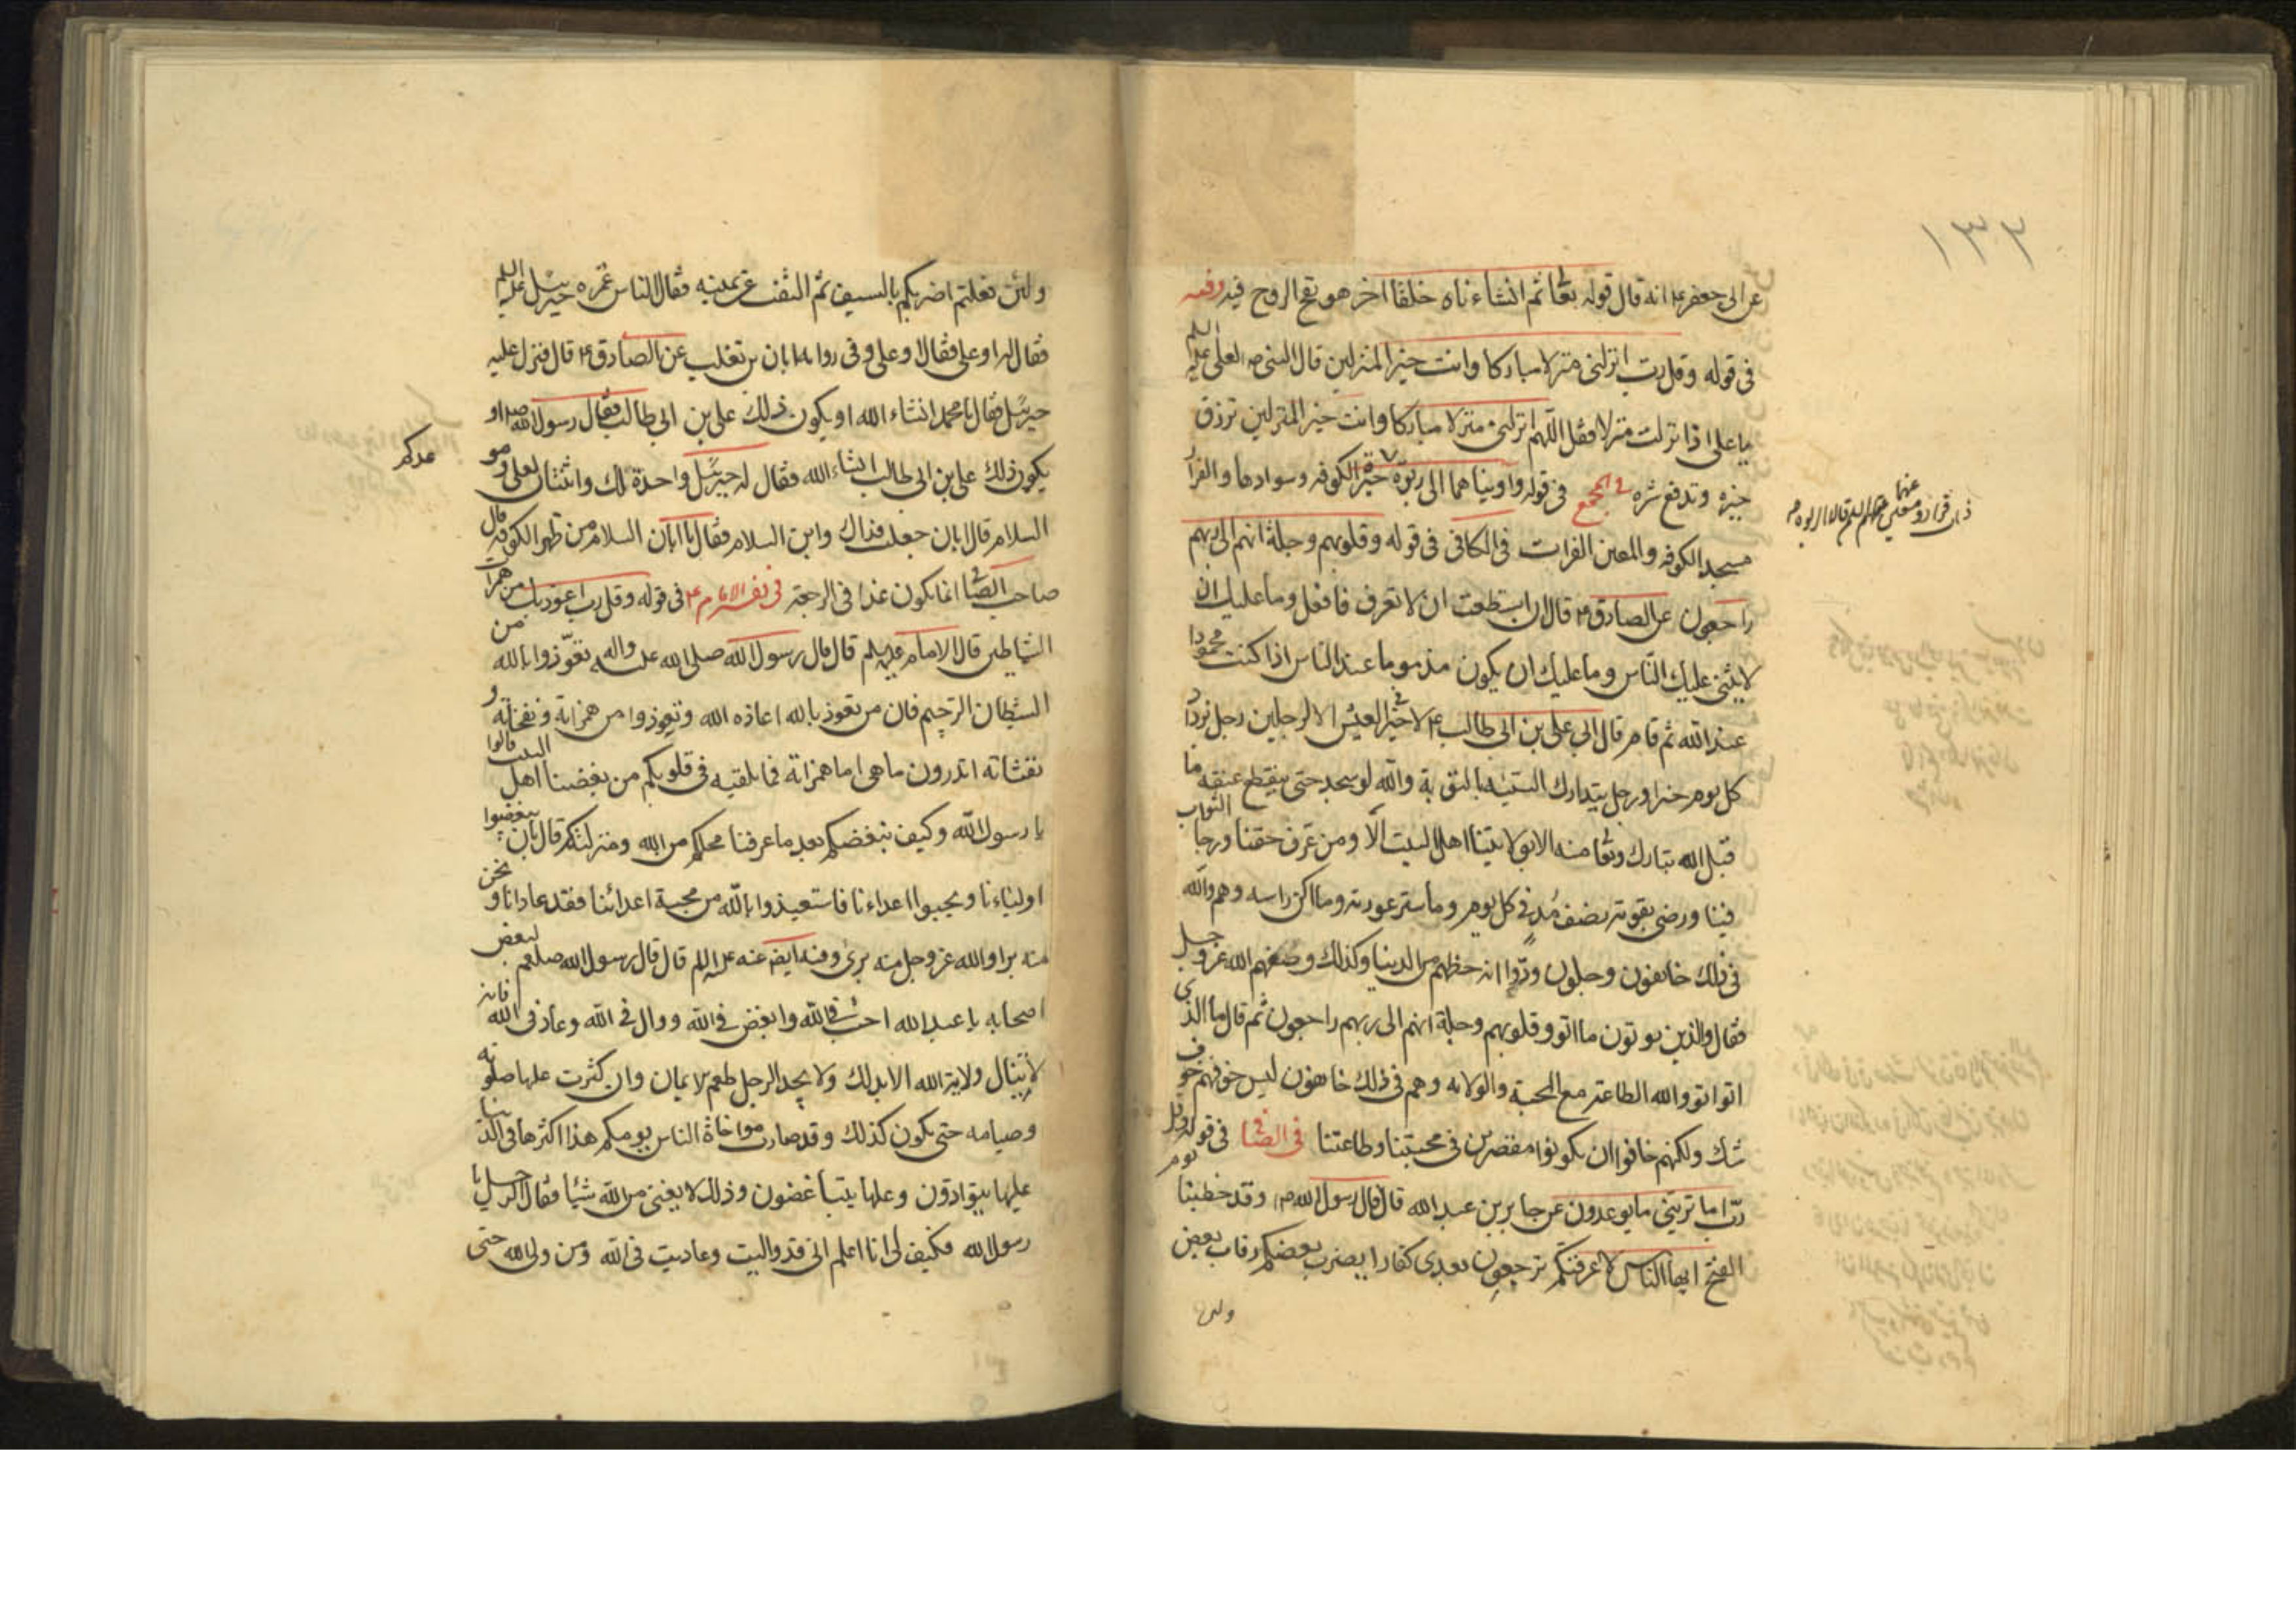 ١٣٢
عن ابى جعفر ع انه قال قوله تعا ثم انشاءناه خلقا اخر هو نفخ الروح فيه وفيه
فى قوله وقل رب انزلنى منزلا مباركا وانت خير المنزلين قال النبى ص لعلى عليه السلم
يا على اذا نزلت منزلا فقل اللهم انزلنى منزلا مباركا وانت خير المنزلين ترزق
خيره وتدفع شره فى المجمع فى قوله وآويناهما الى ربوة حيرة الكوفه وسوادها والقرار
مسجد الكوفه والمعين الفرات فى الكافى فى قوله وقلوبهم وجلة انهم الى ربهم
راجعون عن الصادق ع قال ان استطعت ان لا تعرف فافعل وما عليك ان
لا يثنى عليك الناس وما عليك ان يكون مذموما عند الناس اذا كنت محمودا
عند الله ثم قام قال ابى على بن ابى طالب ع لا خير فى العيش الا لرجلين رجل يزداد
كل يوم خيرا ورجل يتدارك السيئة بالتوبة والله لو سجد حتى ينقطع عنقه ما
قبل الله تبارك وتعا منه الا بولايتنا اهل البيت الا ومن عرف حقنا ورجا الثواب
فينا ورضى بقوته نصف مد فى كل يوم وما ستر عورته وما اكن راسه وهم والله
فى ذلك خائفون وجلون ودوا انه حظهم من الدنيا وكذلك وصفهم الله عز وجل
فقال والذين يوتون ما اتو وقلوبهم وجلة انهم الى ربهم راجعون ثم قال ما الذى
اتوا اتو والله الطاعة مع المحبة والولايه وهم فى ذلك خائفون ليس خوفهم خوف
شك ولكنهم خافوا ان يكونوا مقصرين فى محبتنا وطاعتنا فى الصافى فى قوله وقل
رب اما ترينى ما يوعدون عن جابر بن عبد الله قال قال رسول الله ص وقد خطبنا يوم
الفتح ايها الناس لا عرفنكم ترجعون بعدى كفارا يضرب بعضكم رقاب بعض
ولئن
ولئن فعلتم اضربكم بالسيف ثم التفت عن يمينه فقال الناس غمزه جبرئيل عليه السلم
فقال له او على فقال او على وفى رواية ابان بن تغلب عن الصادق ع قال فنزل عليه
جبرئيل فقال يا محمد انشاء الله او يكون ذلك على بن ابى طالب فقال رسول الله ص او
يكون ذلك على بن ابى طالب انشاء الله فقال له جبرئيل واحدة لك واثنتان لعلى وموعدكم
السلام قال ابان جعلت فداك واين السلام فقال يا ابان السلام من ظهر الكوفه قال
صاحب الصافى انما يكون غذا فى الرجعة فى تفسير الامام ع فى قوله وقل رب اعوذ بك من همزات
الشياطين قال الامام عليه السلم قال قال رسول الله صلى الله عليه واله تعوّذوا بالله من
الشيطان الرجيم فان من تعوذ بالله اعاذه الله وتعوذوا من همزاته ونفخاته و
نفثاته اتدرون ما هى اما همزاته فما يلقيه فى قلوبكم من بغضنا اهل البيت قالوا
يا رسول الله وكيف نبغضكم بعد ما عرفنا محلكم من الله ومنزلتكم قال بان يبغضوا
اوليائنا ويحبوا اعداءنا فاستعيذوا بالله من محبة اعدائنا فقد عادانا و نحن
منه براء والله عز وجل منه برئ وفيه ايضه عنه عليه السلم قال قال رسول الله صلعم لبعض
اصحابه يا عبد الله احب فى الله وابغض فى الله ووال فى الله وعاد فى الله فانه
لا ينال ولاية الله الا بذلك ولا يجد الرجل طعم الايمان وان كثرت علها صلوته
وصيامه حتى يكون كذلك وقد صارت مواخاة الناس يومكم هذا اكثرها فى الدنيا
عليها يتوادون وعلها يتباغضون وذلك لا يغنى من الله شيئا فقال الرجل يا
رسول الله فكيف لى انا اعلم انى قد واليت وعاديت فى الله ومن ولى الله حتى